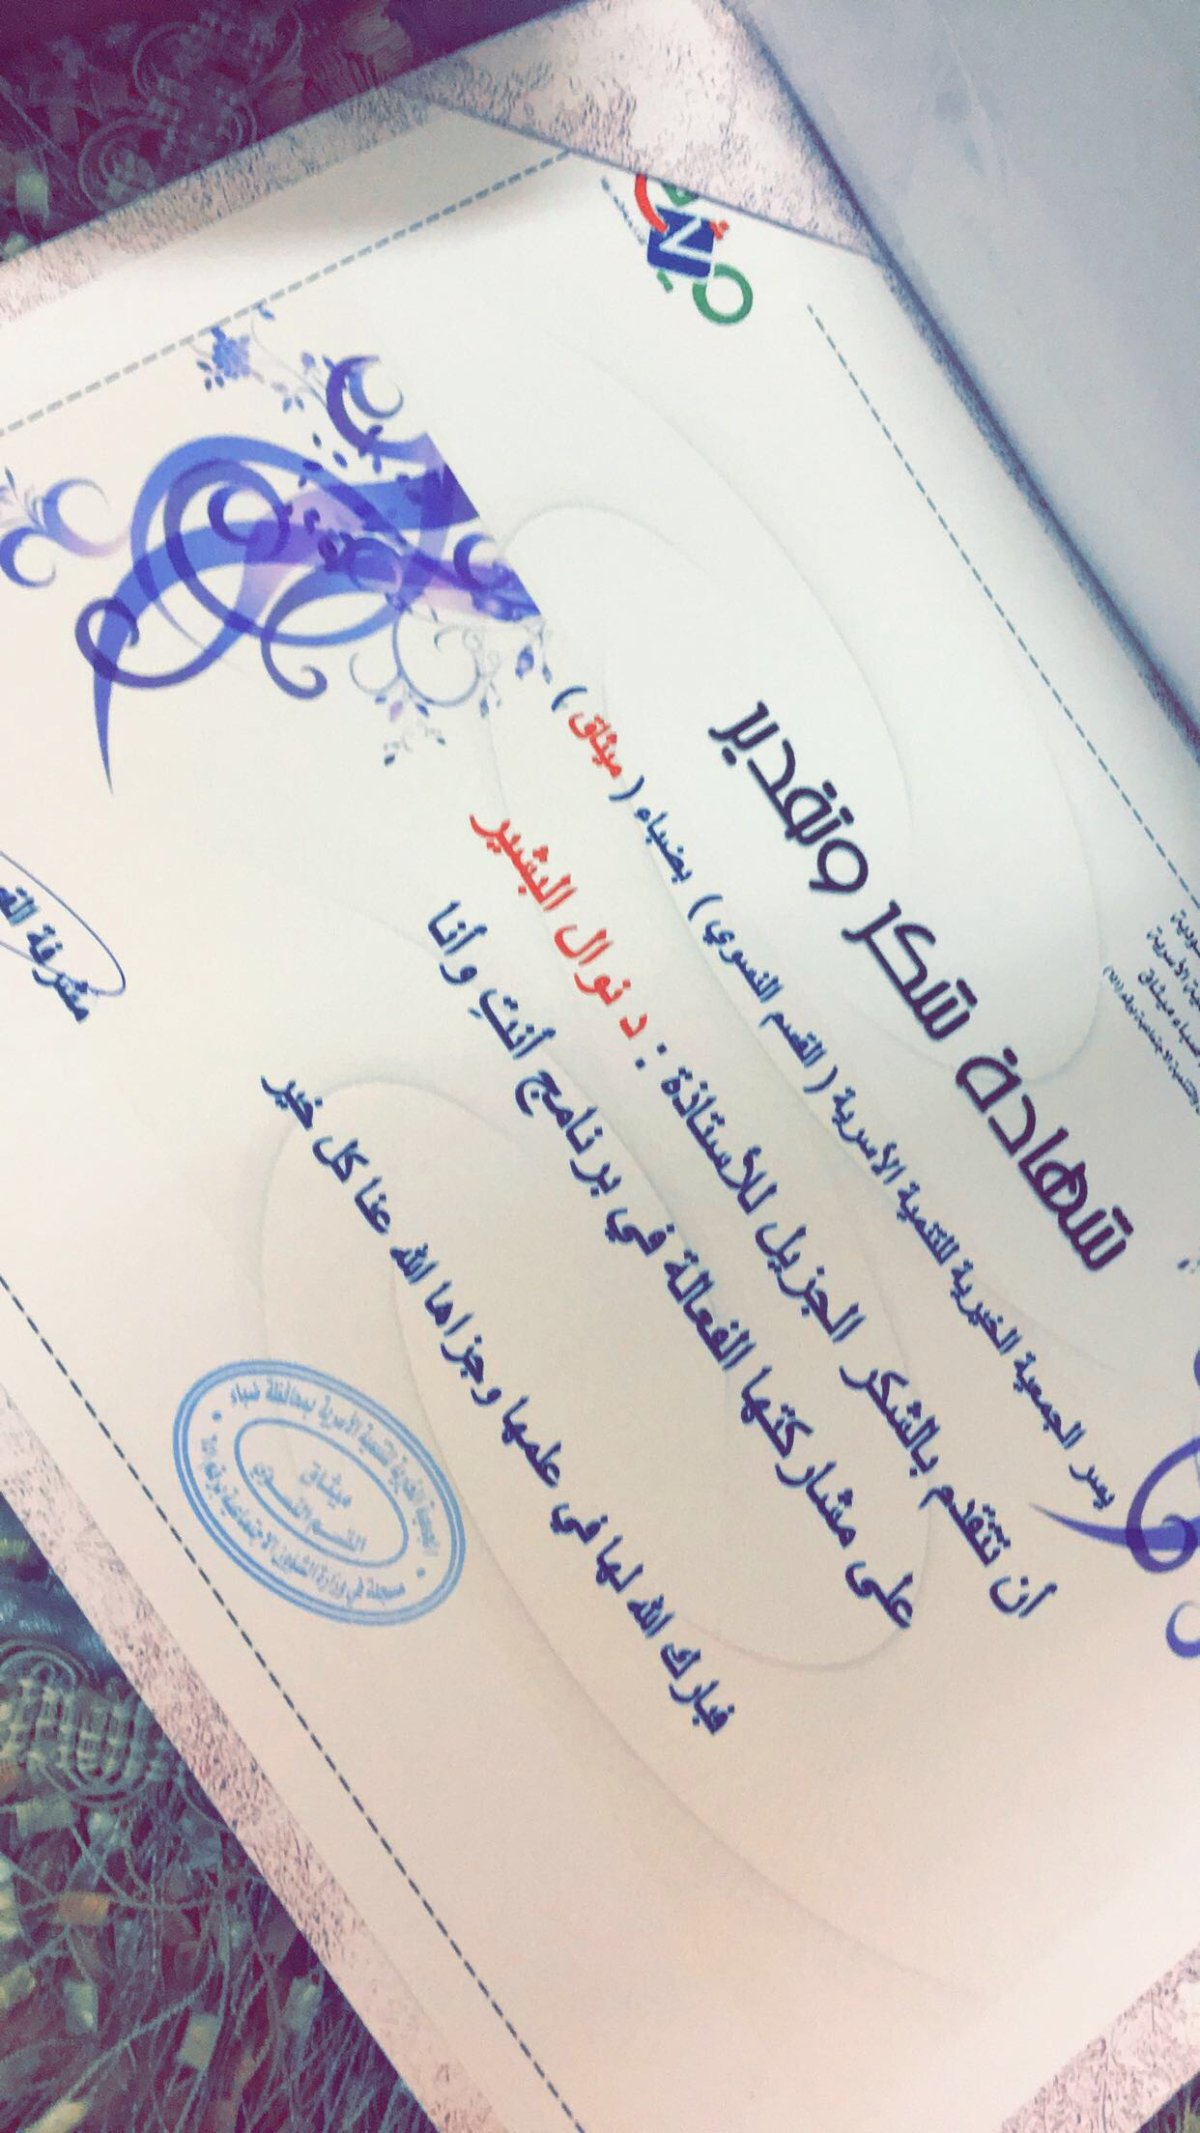 شهادة شكر وتقدير
يسر الجمعية الخيرية للتنمية الأسرية ( القسم النسوي ) بضباء ( ميثاق )
أن تتقدم بالشكر الجزيل للأستاذة : د نوال البشير
على مشاركتها الفعالة في برنامج أنتِ وأنا
فبارك الله لها في علمها وجزاها الله عنا كل خير
مشرفة
الجمعية الخيرية للتنمية الأسرية بمحافظة ضباء
ميثاق
القسم النسوي
مسجلة في وزارة الشؤون الاجتماعية برقم